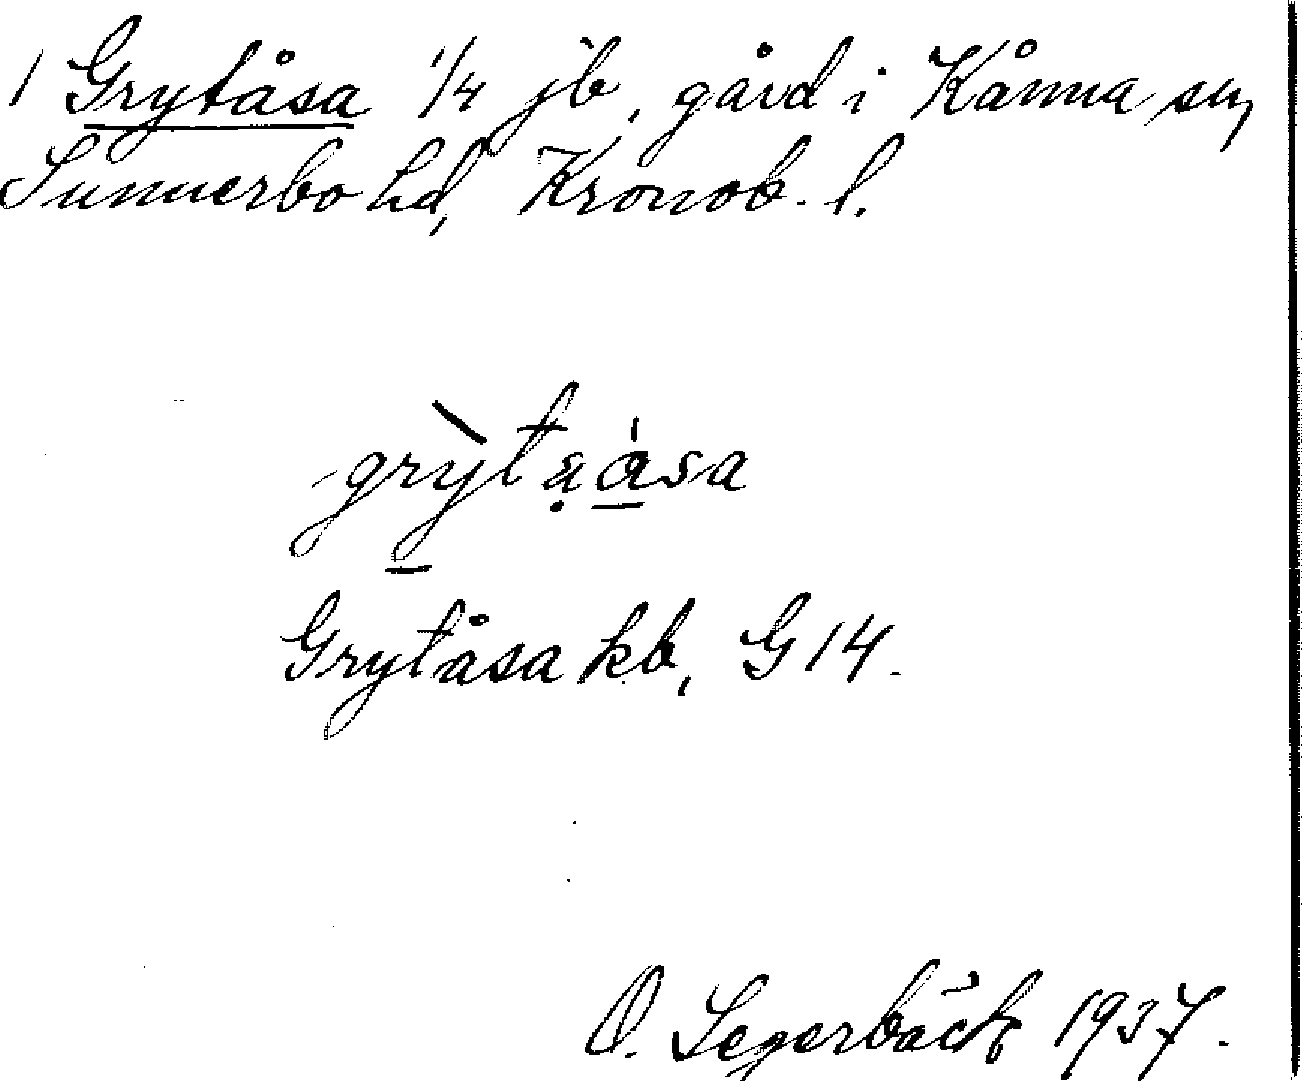 1 Grytåsa 1/4 jb, gård i Kånna sn,
Sunnerbo hd, Kronob. l.
grỳtaåsa
Grytåsa kb, G 14.
O. Segerbäck 1937.